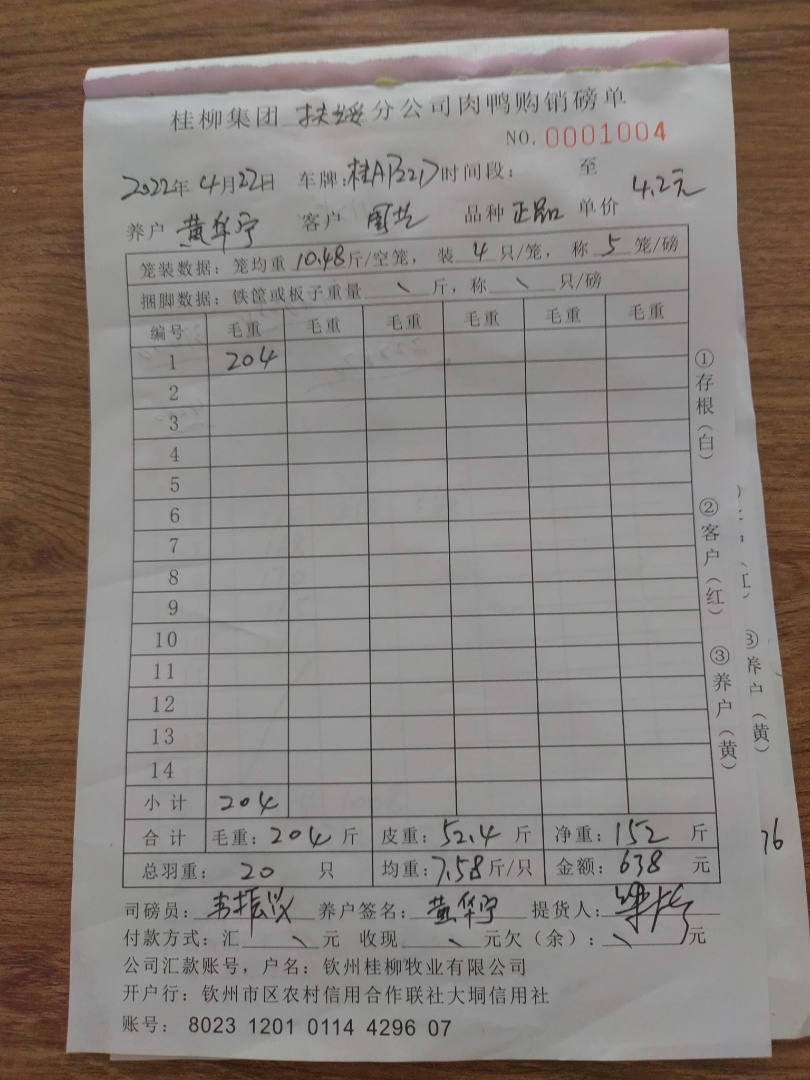 桂柳集团 扶绥 分公司肉鸭购销磅单
NO. 0001004
2022年 4月22日 车牌: 时间段: 至
养户 黄华宁 客户 品种 正品 单价 4.2元
笼装数据: 笼均重 10.48 斤/空笼, 装 4 只/笼, 称 5 笼/磅
捆脚数据: 铁筐或板子重量 \ 斤, 称 \ 只/磅
编号 毛重 毛重 毛重 毛重 毛重 毛重
1 204
2
3
4
5
6
7
8
9
10
11
12
13
14
小计 204
合计 毛重: 204 斤 皮重: 52.4 斤 净重: 152 斤
总羽重: 20 只 均重: 7.58 斤/只 金额: 638 元
司磅员: 韦振兴 养户签名: 黄华宁 提货人:
付款方式: 汇 \ 元 收现 \ 元欠(余): \ 元
公司汇款账号, 户名: 钦州桂柳牧业有限公司
开户行: 钦州市区农村信用合作联社大垌信用社
账号: 8023 1201 0114 4296 07
①存根(白) ②客户(红) ③养户(黄)
③养户(黄)
76